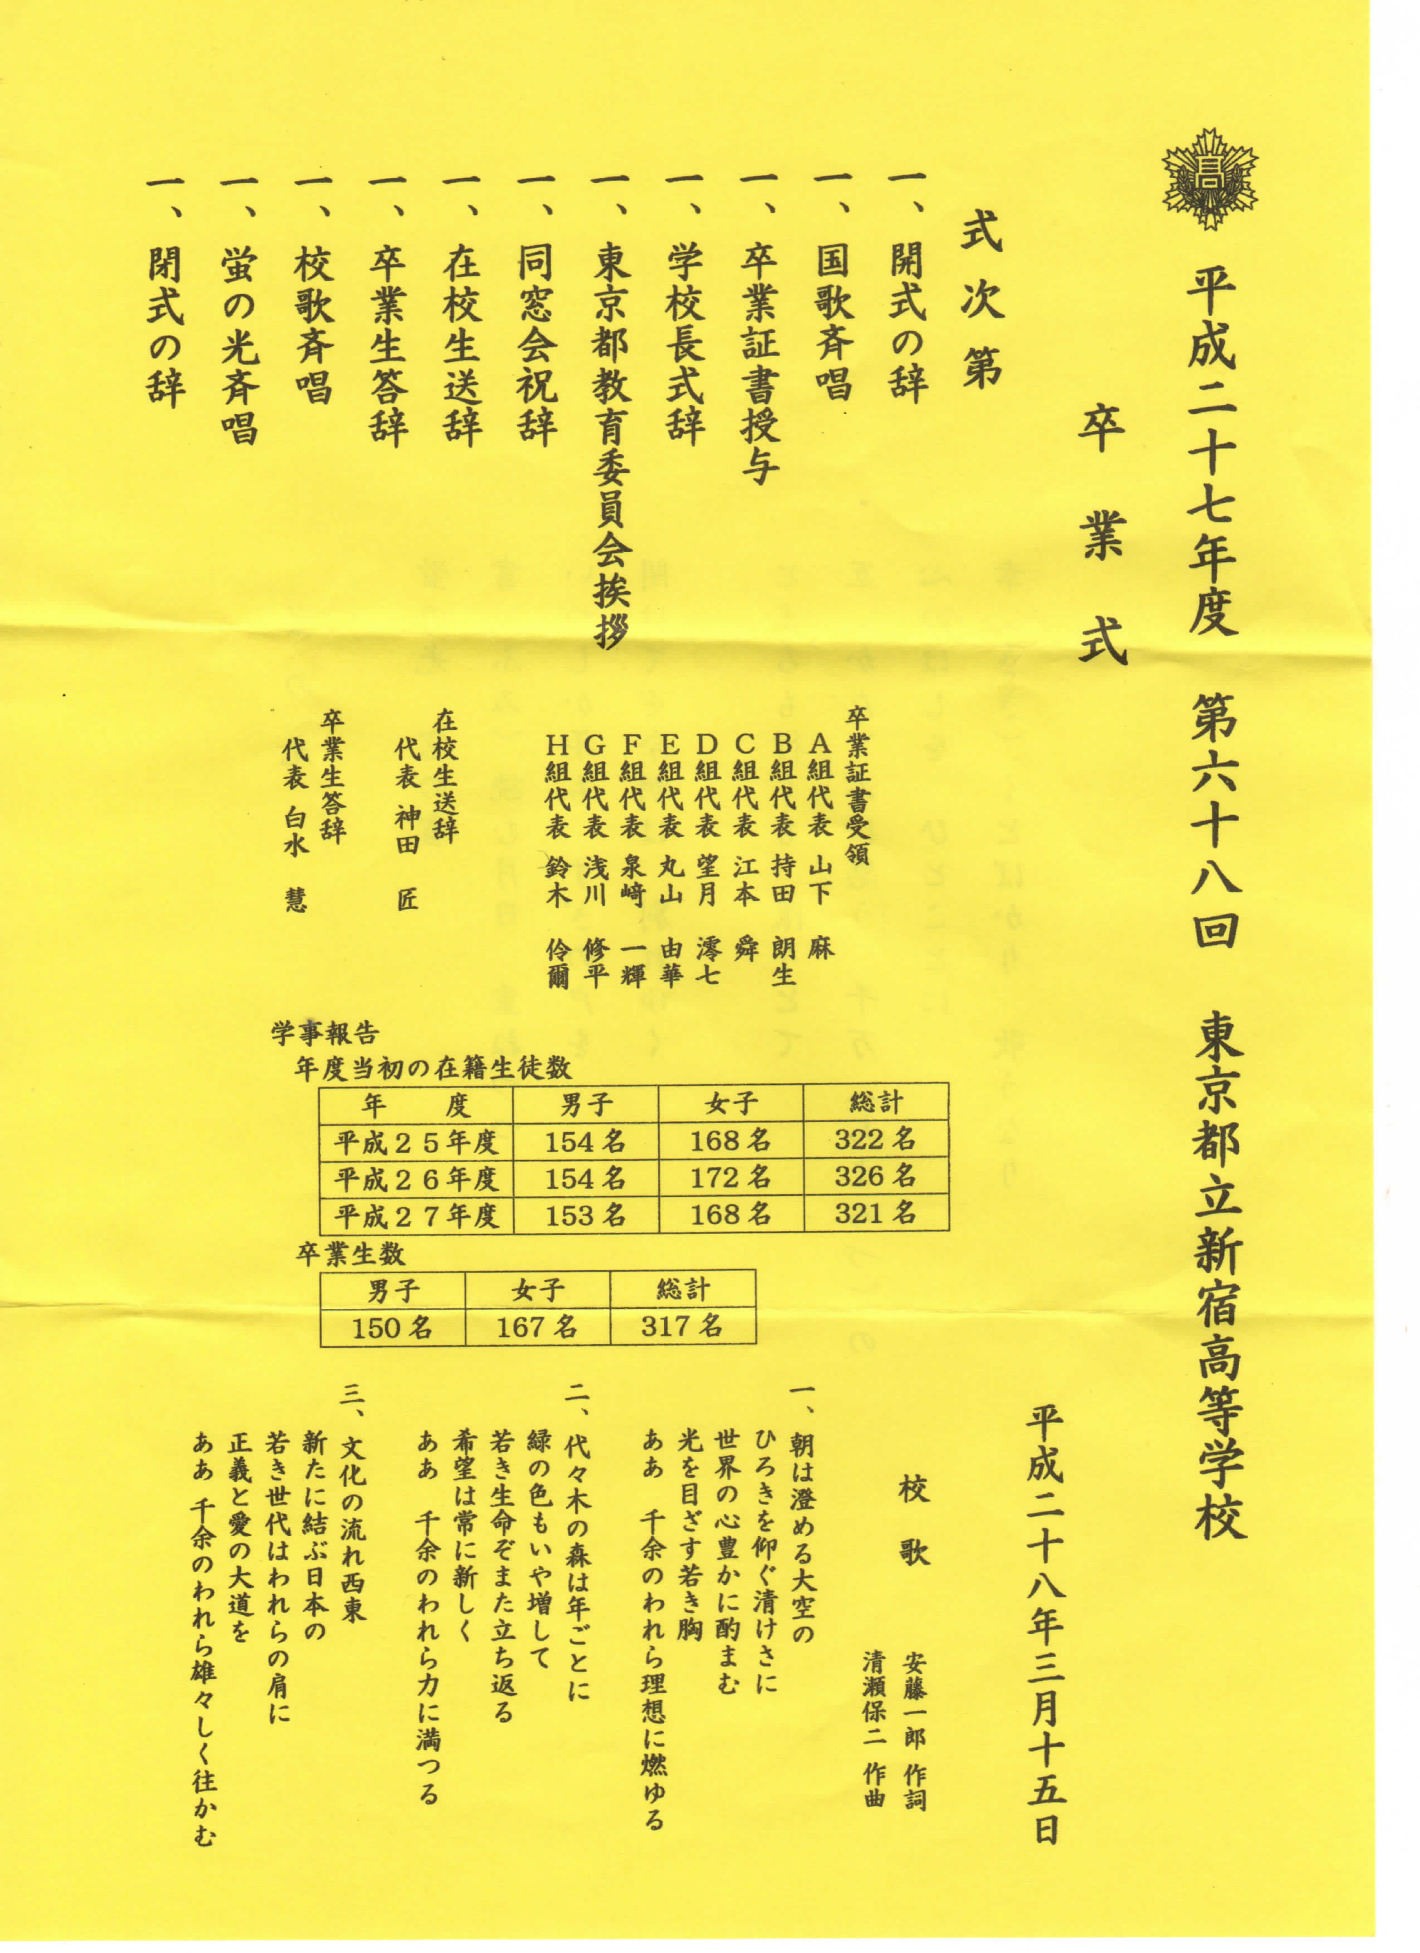 高
平成二十七年度 第六十八回 東京都立新宿高等学校
卒業式
平成二十八年三月十五日
式次第
一、開式の辞
一、国歌斉唱
一、卒業証書授与
一、学校長式辞
一、東京都教育委員会挨拶
一、同窓会祝辞
一、在校生送辞
一、卒業生答辞
一、校歌斉唱
一、蛍の光斉唱
一、閉式の辞
卒業証書受領
A組代表 山下 麻
B組代表 持田 朗生
C組代表 江本 舜
D組代表 望月 澪七
E組代表 丸山 由華
F組代表 泉﨑 一輝
G組代表 浅川 修平
H組代表 鈴木 伶爾
在校生送辞
代表 神田 匠
卒業生答辞
代表 白水 慧
学事報告
年度当初の在籍生徒数
年 度 男子 女子 総計
平成25年度 154名 168名 322名
平成26年度 154名 172名 326名
平成27年度 153名 168名 321名
卒業生数
男子 女子 総計
150名 167名 317名
校歌
安藤一郎 作詞
清瀬保二 作曲
一、朝は澄める大空の
ひろきを仰ぐ清けさに
世界の心豊かに酌まむ
光を目ざす若き胸
ああ 千余のわれら理想に燃ゆる
二、代々木の森は年ごとに
緑の色もいや増して
若き生命ぞまた立ち返る
希望は常に新しく
ああ 千余のわれら力に満つる
三、文化の流れ西東
新たに結ぶ日本の
若き世代はわれらの肩に
正義と愛の大道を
ああ 千余のわれら雄々しく往かむ